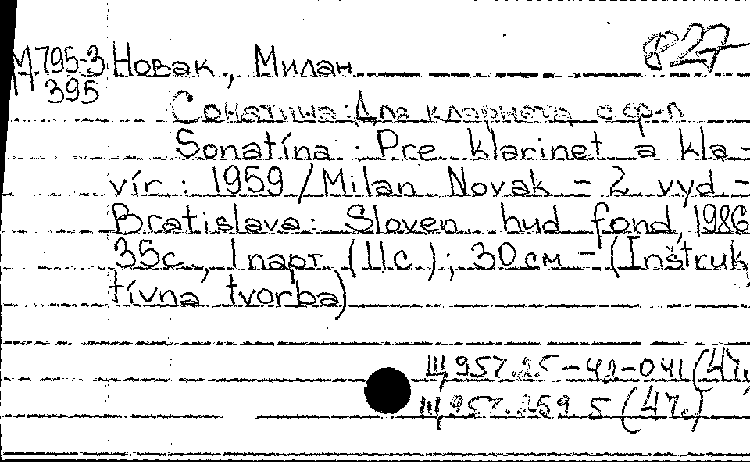 827
М795-3 Новак, Милан
395
Сонатина: Для кларнета с ф-п
Sonatína: Pre klarinet a kla-
vír: 1959 / Milan Novak - 2 vyd -
Bratislava: Sloven hud fond, 1986
35с., 1 парт. (11с.); 30см - (Inštruk
tívna tvorba)
Щ957.25-42-041(47
Щ957.259.5 (47)